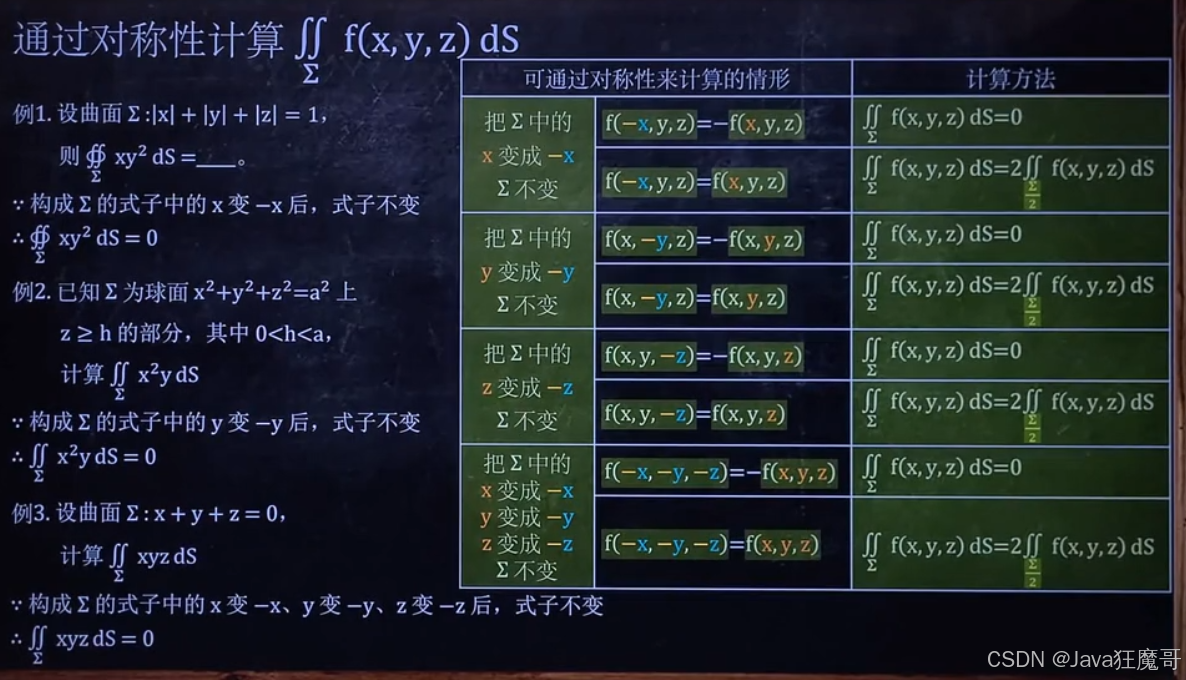 通过对称性计算 ∬Σ f(x, y, z) dS
例1. 设曲面 Σ:|x| + |y| + |z| = 1，
则 ∯Σ xy² dS =____。
∵ 构成 Σ 的式子中的 x 变 −x 后，式子不变
∴ ∯Σ xy² dS = 0
例2. 已知 Σ 为球面 x²+y²+z²=a² 上
z ≥ h 的部分，其中 0<h<a，
计算 ∬Σ x²y dS
∵ 构成 Σ 的式子中的 y 变 −y 后，式子不变
∴ ∬Σ x²y dS = 0
例3. 设曲面 Σ : x + y + z = 0，
计算 ∬Σ xyz dS
∵ 构成 Σ 的式子中的 x 变 −x、y 变 −y、z 变 −z 后，式子不变
∴ ∬Σ xyz dS = 0
可通过对称性来计算的情形
计算方法
把 Σ 中的
x 变成 −x
Σ 不变
f(−x, y, z)=−f(x, y, z)
∬Σ f(x, y, z) dS=0
f(−x, y, z)=f(x, y, z)
∬Σ f(x, y, z) dS=2∬Σ/2 f(x, y, z) dS
把 Σ 中的
y 变成 −y
Σ 不变
f(x, −y, z)=−f(x, y, z)
∬Σ f(x, y, z) dS=0
f(x, −y, z)=f(x, y, z)
∬Σ f(x, y, z) dS=2∬Σ/2 f(x, y, z) dS
把 Σ 中的
z 变成 −z
Σ 不变
f(x, y, −z)=−f(x, y, z)
∬Σ f(x, y, z) dS=0
f(x, y, −z)=f(x, y, z)
∬Σ f(x, y, z) dS=2∬Σ/2 f(x, y, z) dS
把 Σ 中的
x 变成 −x
y 变成 −y
z 变成 −z
Σ 不变
f(−x, −y, −z)=−f(x, y, z)
∬Σ f(x, y, z) dS=0
f(−x, −y, −z)=f(x, y, z)
∬Σ f(x, y, z) dS=2∬Σ/2 f(x, y, z) dS
CSDN @Java狂魔哥